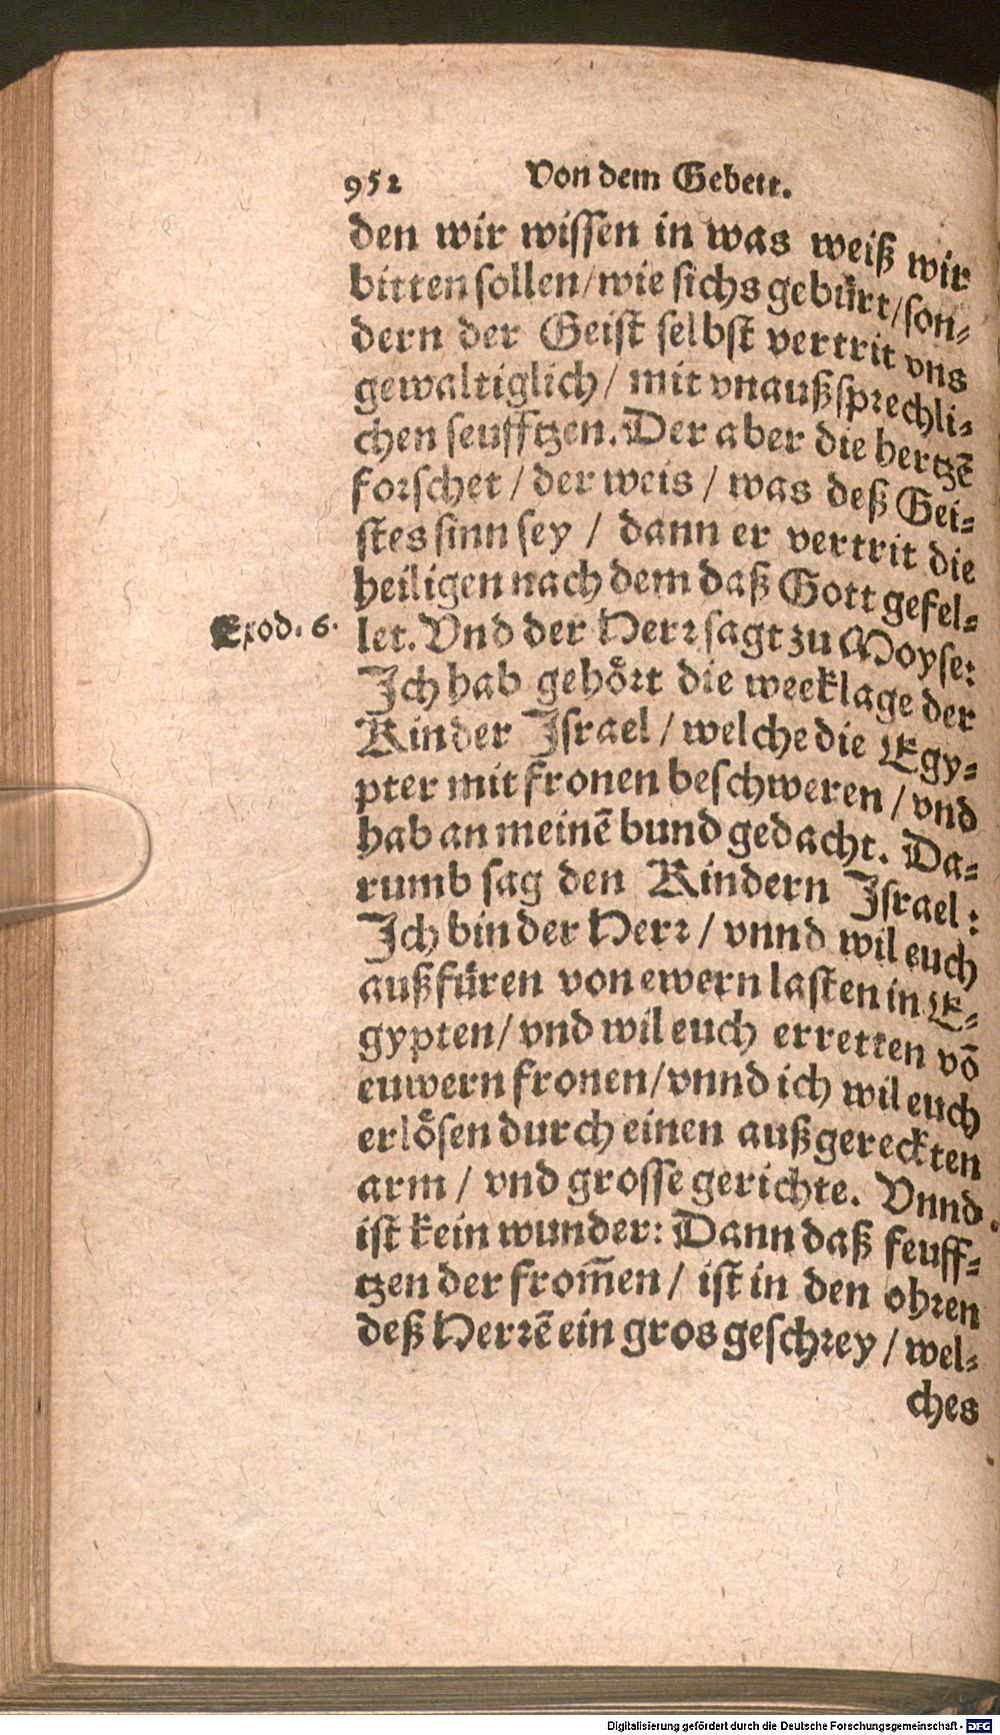 952 Von dem Gebett.
den wir wissen in was weiß wir
bitten sollen/wie sichs gebürt/son⸗
dern der Geist selbst vertrit vns
gewaltiglich/ mit vnaußsprechli⸗
chen seufftzen. Der aber die hertzē
forschet / der weis / was deß Gei⸗
stes sinn sey / dann er vertrit die
heiligen nach dem daß Gott gefel⸗
Exod. 6.
let. Vnd der Herr sagt zu Moyse:
Ich hab gehört die weeklage der
Kinder Israel / welche die Egy⸗
pter mit fronen beschweren / vnd
hab an meinē bund gedacht. Da⸗
rumb sag den Kindern Israel:
Ich bin der Herr / vnnd wil euch
außfüren von ewern lasten in E⸗
gypten/ vnd wil euch erretten vō
euwern fronen/vnnd ich wil euch
erlösen durch einen außgereckten
arm / vnd grosse gerichte. Vnnd
ist kein wunder: Dann daß seuff⸗
tzen der from̄en / ist in den ohren
deß Herrē ein gros geschrey / wel⸗
ches
Digitalisierung gefördert durch die Deutsche Forschungsgemeinschaft - DFG